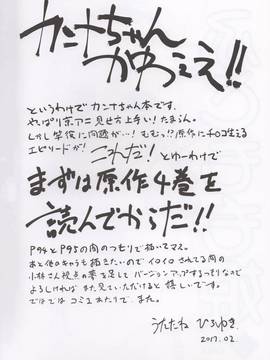 カンナちゃん
かわええ!!
というわけでカンナちゃん本です。
やっぱり京アニ見せ方上手い!たまらん。
しかし竿役に問題が…!むむっ!?原作にチ○コ生える
エピソードが! これだ!とゆーわけで
まずは原作4巻を
読んでからだ!!
P94とP95の間のつもりで描いてマス。
あと他のキャラも描きたいのでイロイロされてる間の
小林さん視点の夢を足してバージョンアップするつもりなので
よろしければまた見ていただけると嬉しいです。
ではではコミ1あたりで、また。
うたたねひろゆき
2017.02